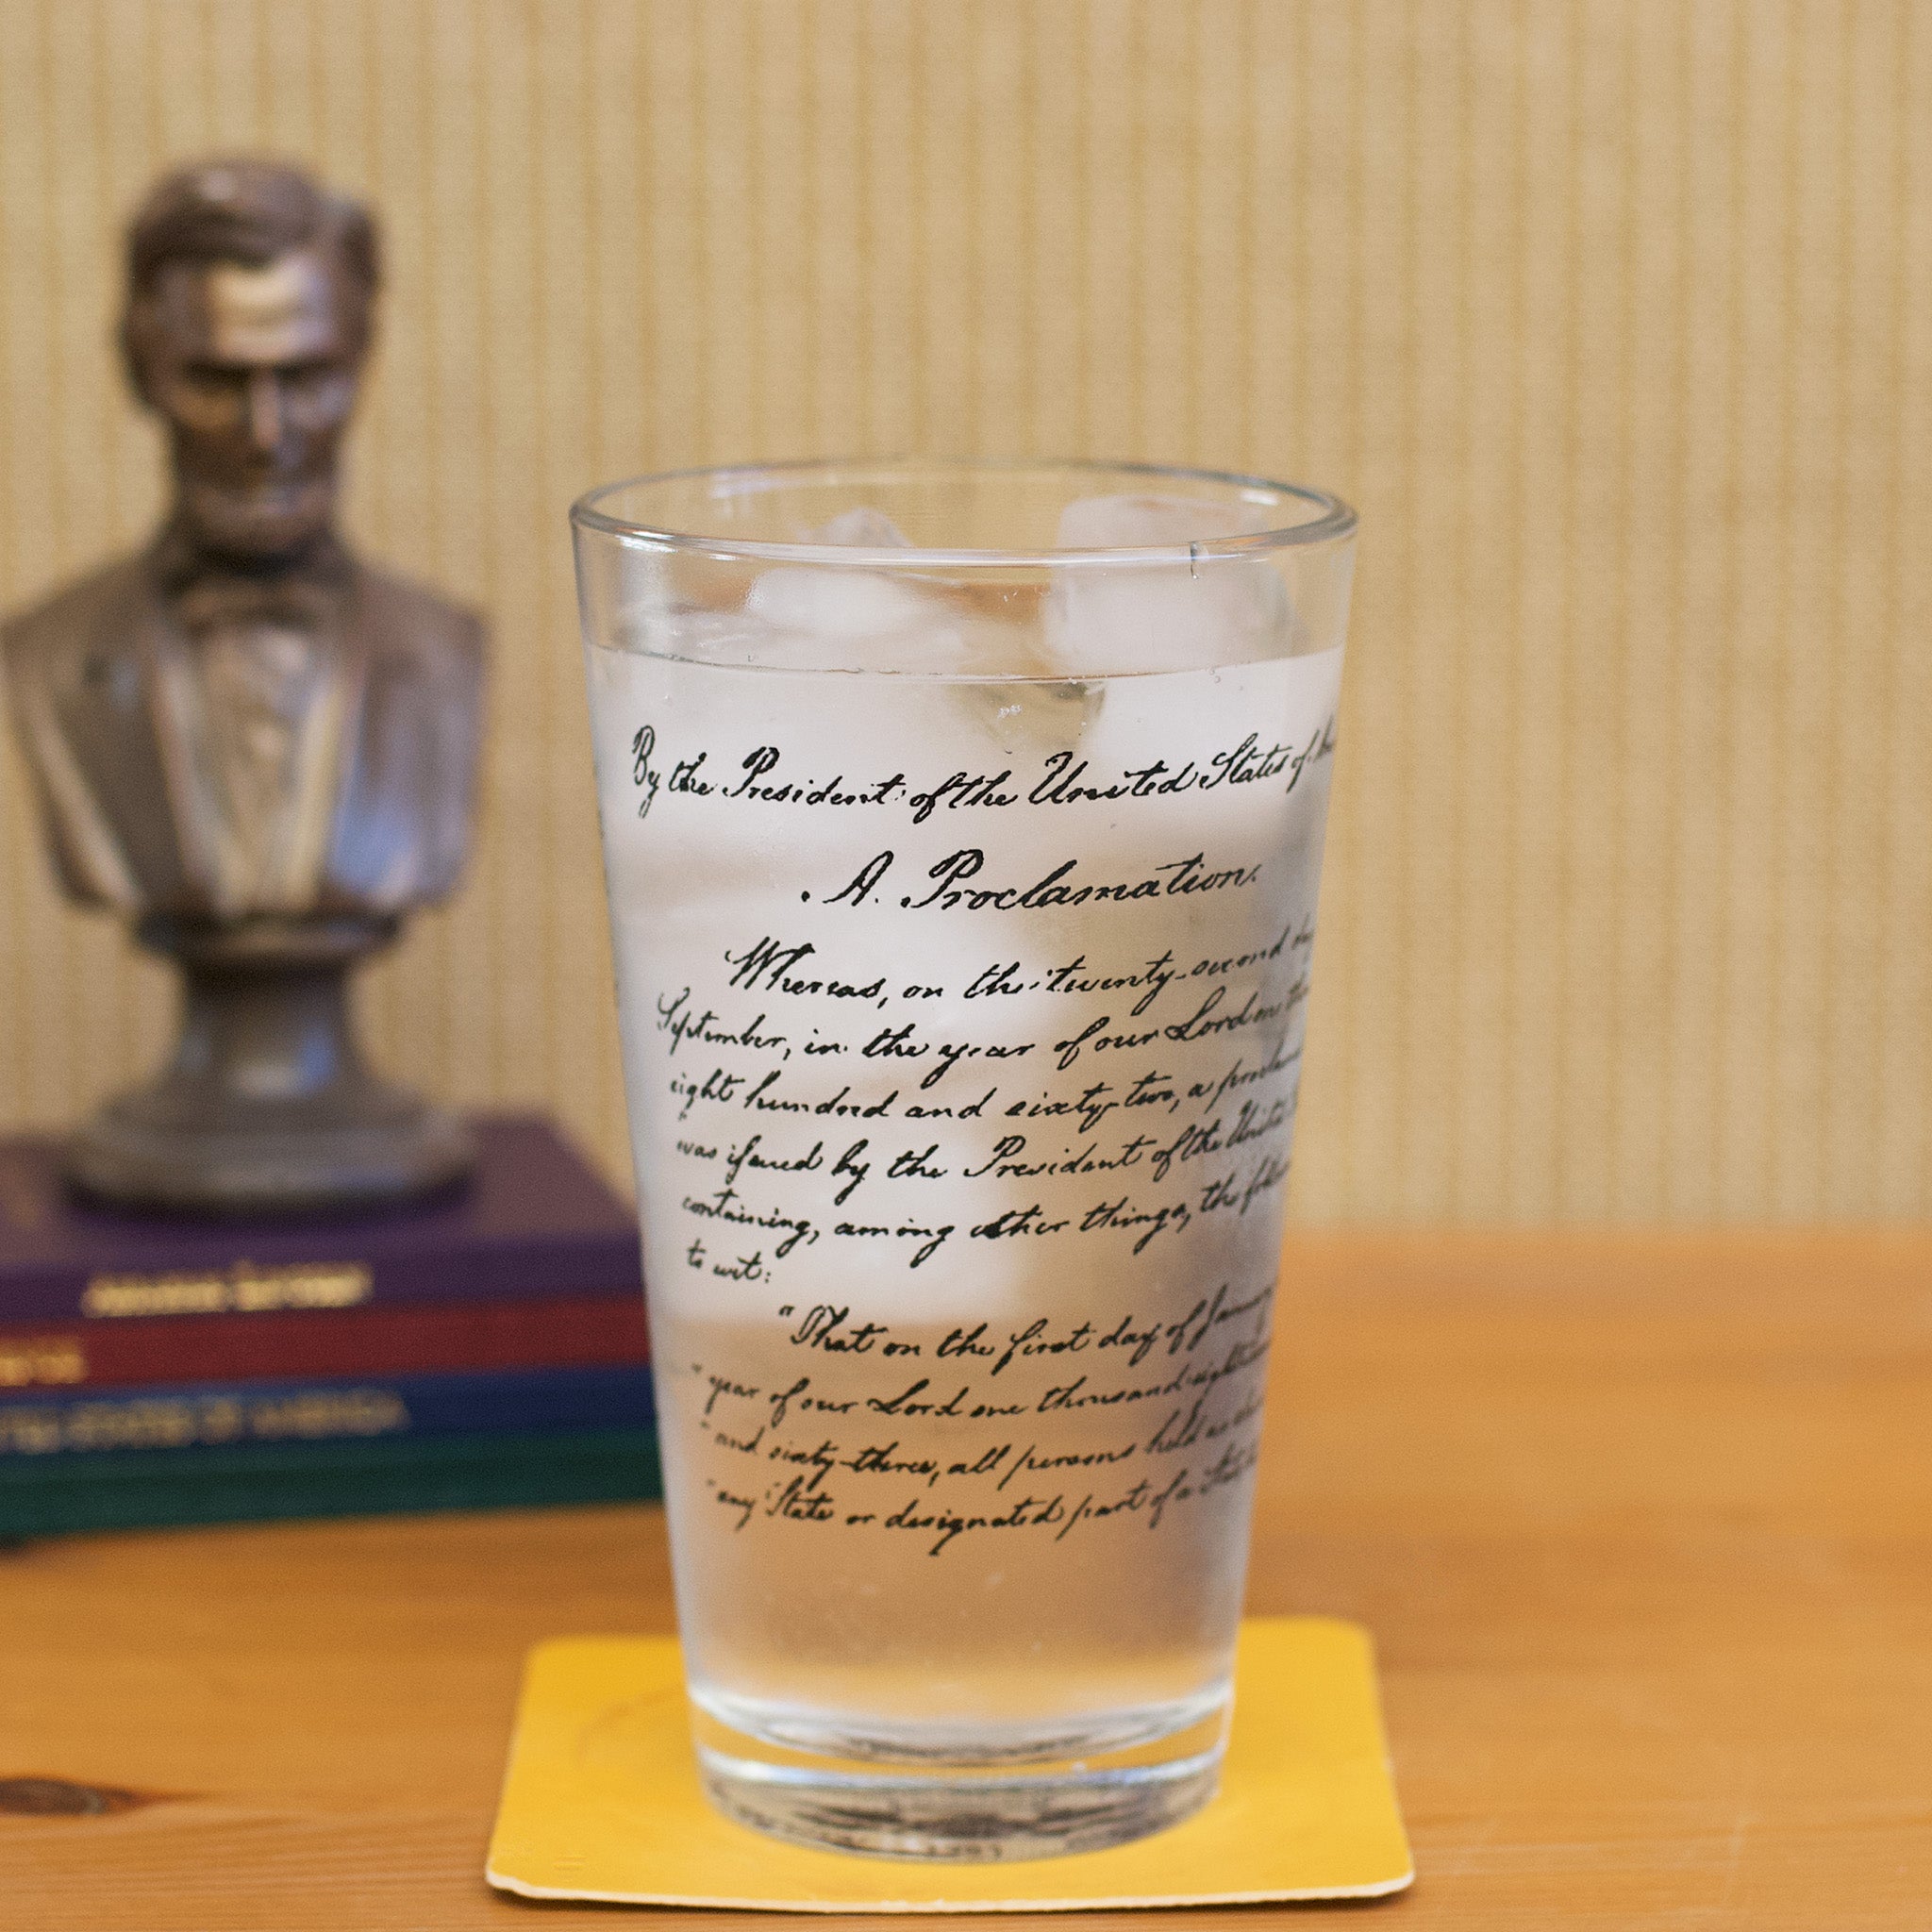 By the President of the United States of
A. Proclamation.
Whereas, on the twenty-second
September, in the year of our Lord
eight hundred and sixty-two, a
was issued by the President of the
containing, among other things, the
to wit:
"That on the first day of
" year of our Lord one thousand
" and sixty-three, all persons held
" any State or designated part of a State